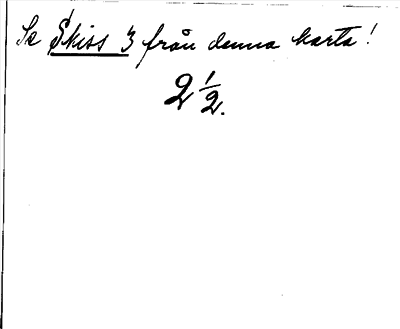 Se Skiss 3 från denna karta!
2 1/2.